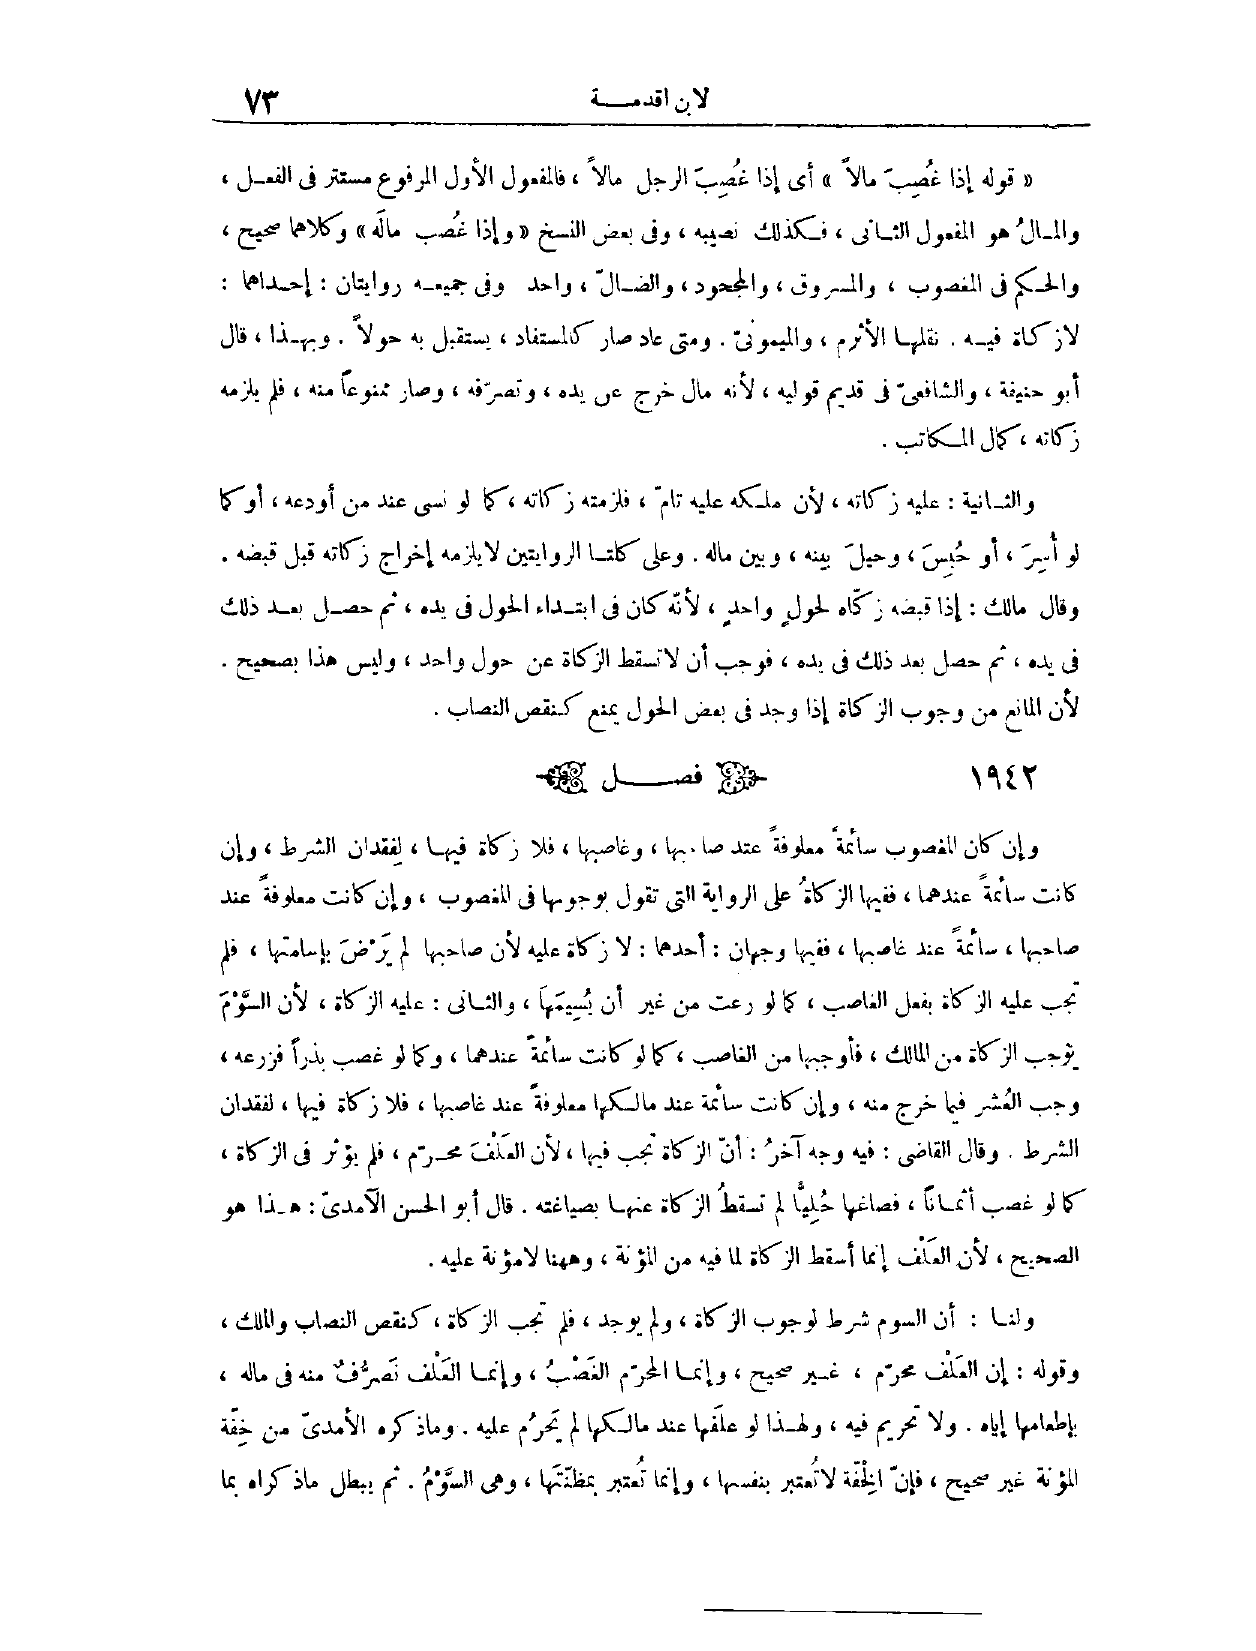 لابن اقدمة ٧٣
« قوله إذا غُصِبَ مالاً » أى إذا غُصِبَ الرجل مالاً ، فالمفعول الأول المرفوع مستتر فى الفعل ،
والمالُ هو المفعول الثانى ، فكذلك نصيبه ، وفى بعض النسخ « وإذا غُصب مالَه » وكلاهما صحيح ،
والحكم فى المغصوب ، والمسروق ، والمجحود ، والضالّ ، واحد وفى جميعه روايتان : إحداهما :
لا زكاة فيه . نقلها الأثرم ، والميمونىّ . ومتى عاد صار كالمستفاد ، يستقبل به حولاً . وبهذا ، قال
أبو حنيفة ، والشافعىّ فى قديم قوليه ، لأنه مال خرج عن يده ، وتصرّفه ، وصار ممنوعاً منه ، فلم يلزمه
زكاته ، كمال المكاتب .
والثانية : عليه زكاته ، لأن ملكه عليه تامّ ، فلزمته زكاته ، كما لو نسى عند من أودعه ، أو كما
لو أُسِرَ ، أو حُبِسَ ، وحيلَ بينه ، وبين ماله . وعلى كلتا الروايتين لا يلزمه إخراج زكاته قبل قبضه .
وقال مالك : إذا قبضه زكّاه لحولٍ واحدٍ ، لأنّه كان فى ابتداء الحول فى يده ، ثم حصل بعد ذلك
فى يده ، ثم حصل بعد ذلك فى يده ، فوجب أن لا تسقط الزكاة عن حول واحد ، وليس هذا بصحيح .
لأن المانع من وجوب الزكاة إذا وجد فى بعض الحول يمنع كنقص النصاب .
١٩٤٢ فصل
وإن كان المغصوب سائمةً معلوفةً عند صاحبها ، وغاصبها ، فلا زكاة فيها ، لِفقدان الشرط ، وإن
كانت سائمةً عندهما ، ففيها الزكاةُ على الرواية التى تقول بوجوبها فى المغصوب ، وإن كانت معلوفةً عند
صاحبها ، سائمةً عند غاصبها ، ففيها وجهان : أحدهما : لا زكاة عليه لأن صاحبها لم يَرْضَ بإسامتها ، فلم
تجب عليه الزكاة بفعل الغاصب ، كما لو رعت من غير أن يُسِيمَهَا ، والثانى : عليه الزكاة ، لأن السَّوْمَ
يوجب الزكاة من المالك ، فأوجبها من الغاصب ، كما لو كانت سائمةً عندهما ، وكما لو غصب بذراً فزرعه ،
وجب العُشر فيما خرج منه ، وإن كانت سائمة عند مالكها معلوفةً عند غاصبها ، فلا زكاة فيها ، لفقدان
الشرط . وقال القاضى : فيه وجه آخرُ : أنّ الزكاة تجب فيها ، لأن العَلْفَ محرّم ، فلم يؤثر فى الزكاة ،
كما لو غصب أثماناً ، فصاغها حُلِيًّا لم تسقطُ الزكاة عنها بصياغته . قال أبو الحسن الآمدىّ : هذا هو
الصحيح ، لأن العَلْف إنما أسقط الزكاة لما فيه من المؤنة ، وههنا لا مؤنة عليه .
ولنا : أن السوم شرط لوجوب الزكاة ، ولم يوجد ، فلم تجب الزكاة ، كنقص النصاب والملك ،
وقوله : إن العَلْف محرّم ، غير صحيح ، وإنما المحرّم الغَصْبُ ، وإنما العَلْف تَصرُّفٌ منه فى ماله ،
بإطعامها إياه . ولا تحريم فيه ، ولهذا لو علَفها عند مالكها لم يَحرُم عليه . وماذكره الأمدىّ من خِفّة
المؤنة غير صحيح ، فإنّ الخِفّة لا تُعتبر بنفسها ، وإنما تُعتبر بمظنّتها ، وهى السَّوْمُ . ثم يبطل ماذكراه بما